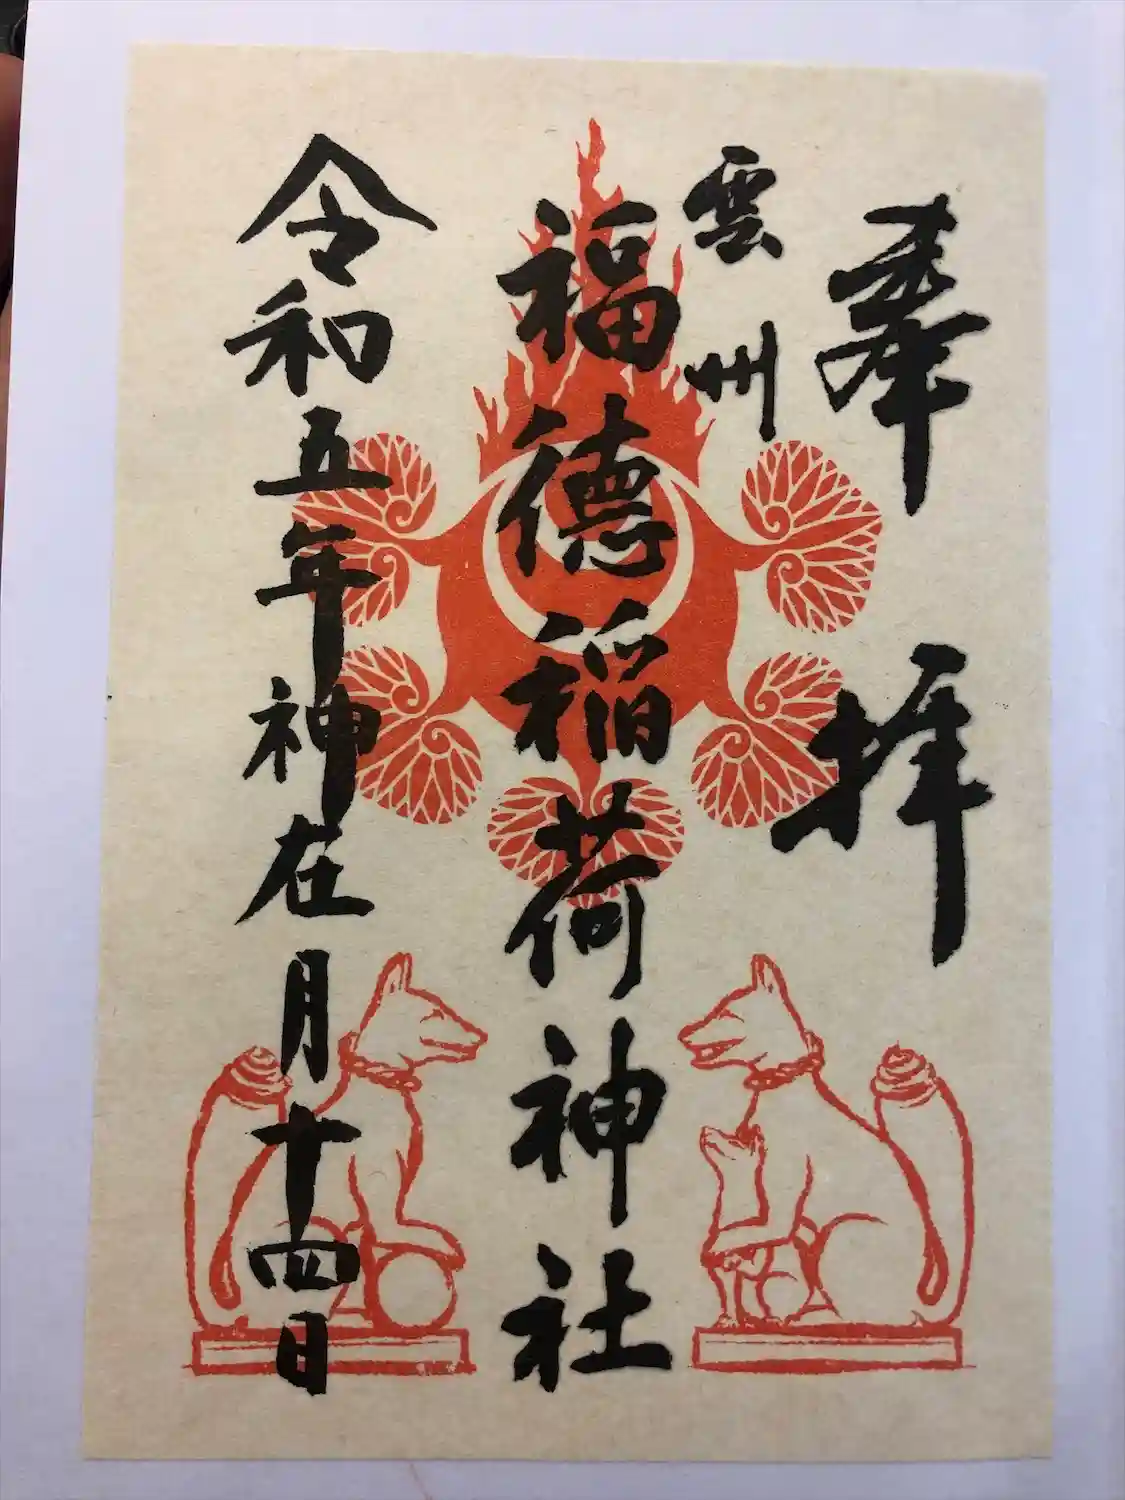 奉拝
雲州
福徳稲荷神社
令和五年神在月十四日